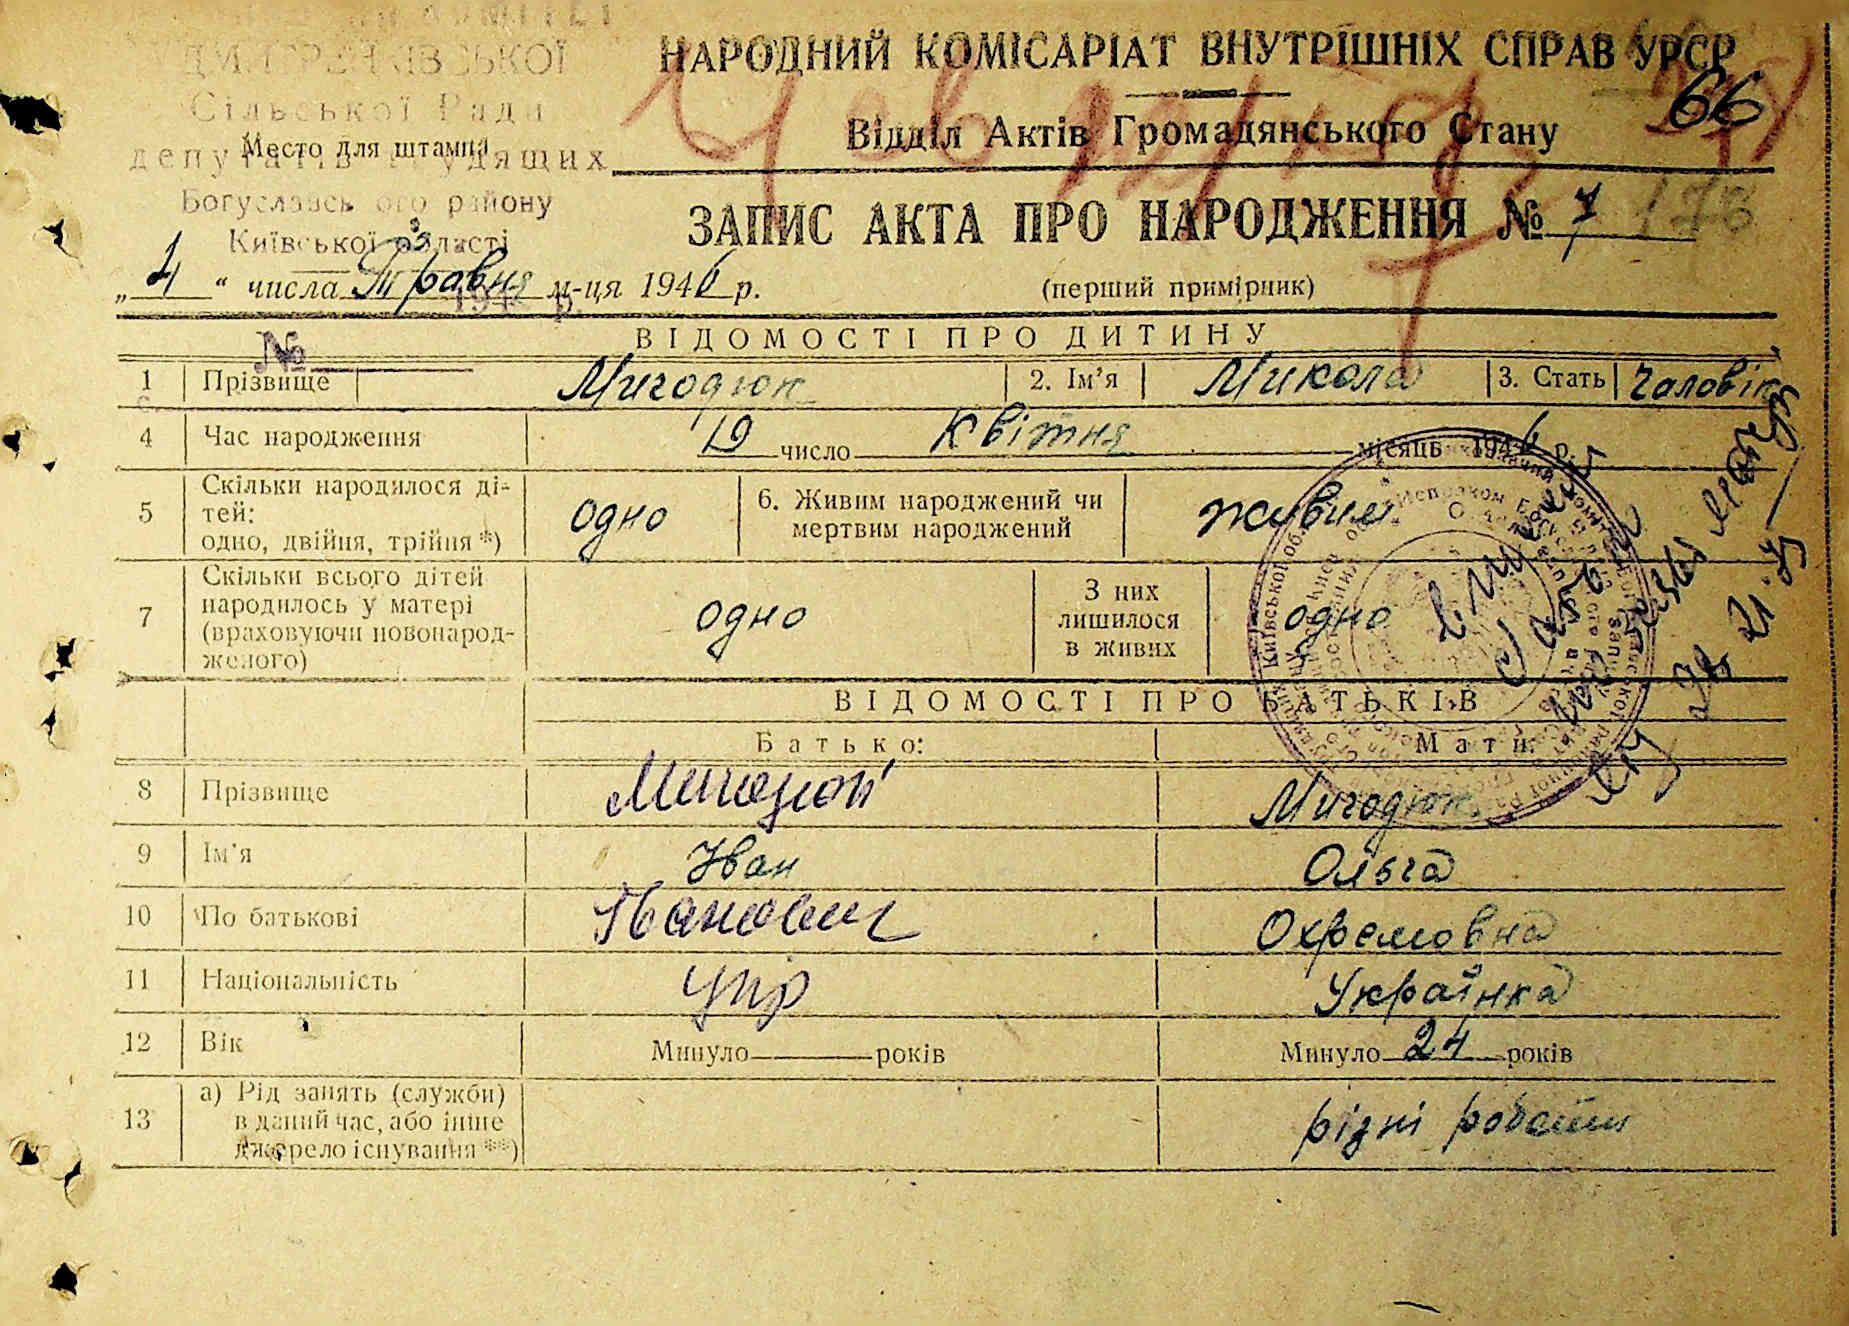 НАРОДНИЙ КОМІСАРІАТ ВНУТРІШНІХ СПРАВ УРСР
66
Сільської Ради
Відділ Актів Громадянського Стану
Место для штампа
депутатів трудящих
Богуславського району
Київської області
ЗАПИС АКТА ПРО НАРОДЖЕННЯ № 7
„4“ числа Травня м-ця 1946 р.
(перший примірник)
194 р.
№
ВІДОМОСТІ ПРО ДИТИНУ
1 Прізвище Мигодюк 2. Ім'я Микола 3. Стать Чоловік
4 Час народження 19 число Квітня місяць 1946 р.
5 Скільки народилося ді-
тей:
одно, двійня, трійня *)
одно
6. Живим народжений чи
мертвим народжений
живим
7 Скільки всього дітей
народилось у матері
(враховуючи новонарод-
женого)
одно
З них
лишилося
в живих
одно
ВІДОМОСТІ ПРО БАТЬКІВ
Батько: Мати:
8 Прізвище Мигодюк
9 Ім'я Іван Ольга
10 По батькові Іванович Охремовна
11 Національність укр Українка
12 Вік Минуло років Минуло 24 років
13 а) Рід занять (служби)
в даний час, або інше
джерело існування **)
різні роботи